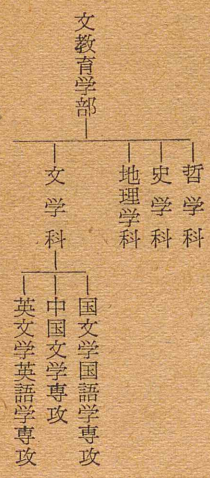 文教育学部
哲学科
史学科
地理学科
文学科
国文学国語学専攻
中国文学専攻
英文学英語学専攻